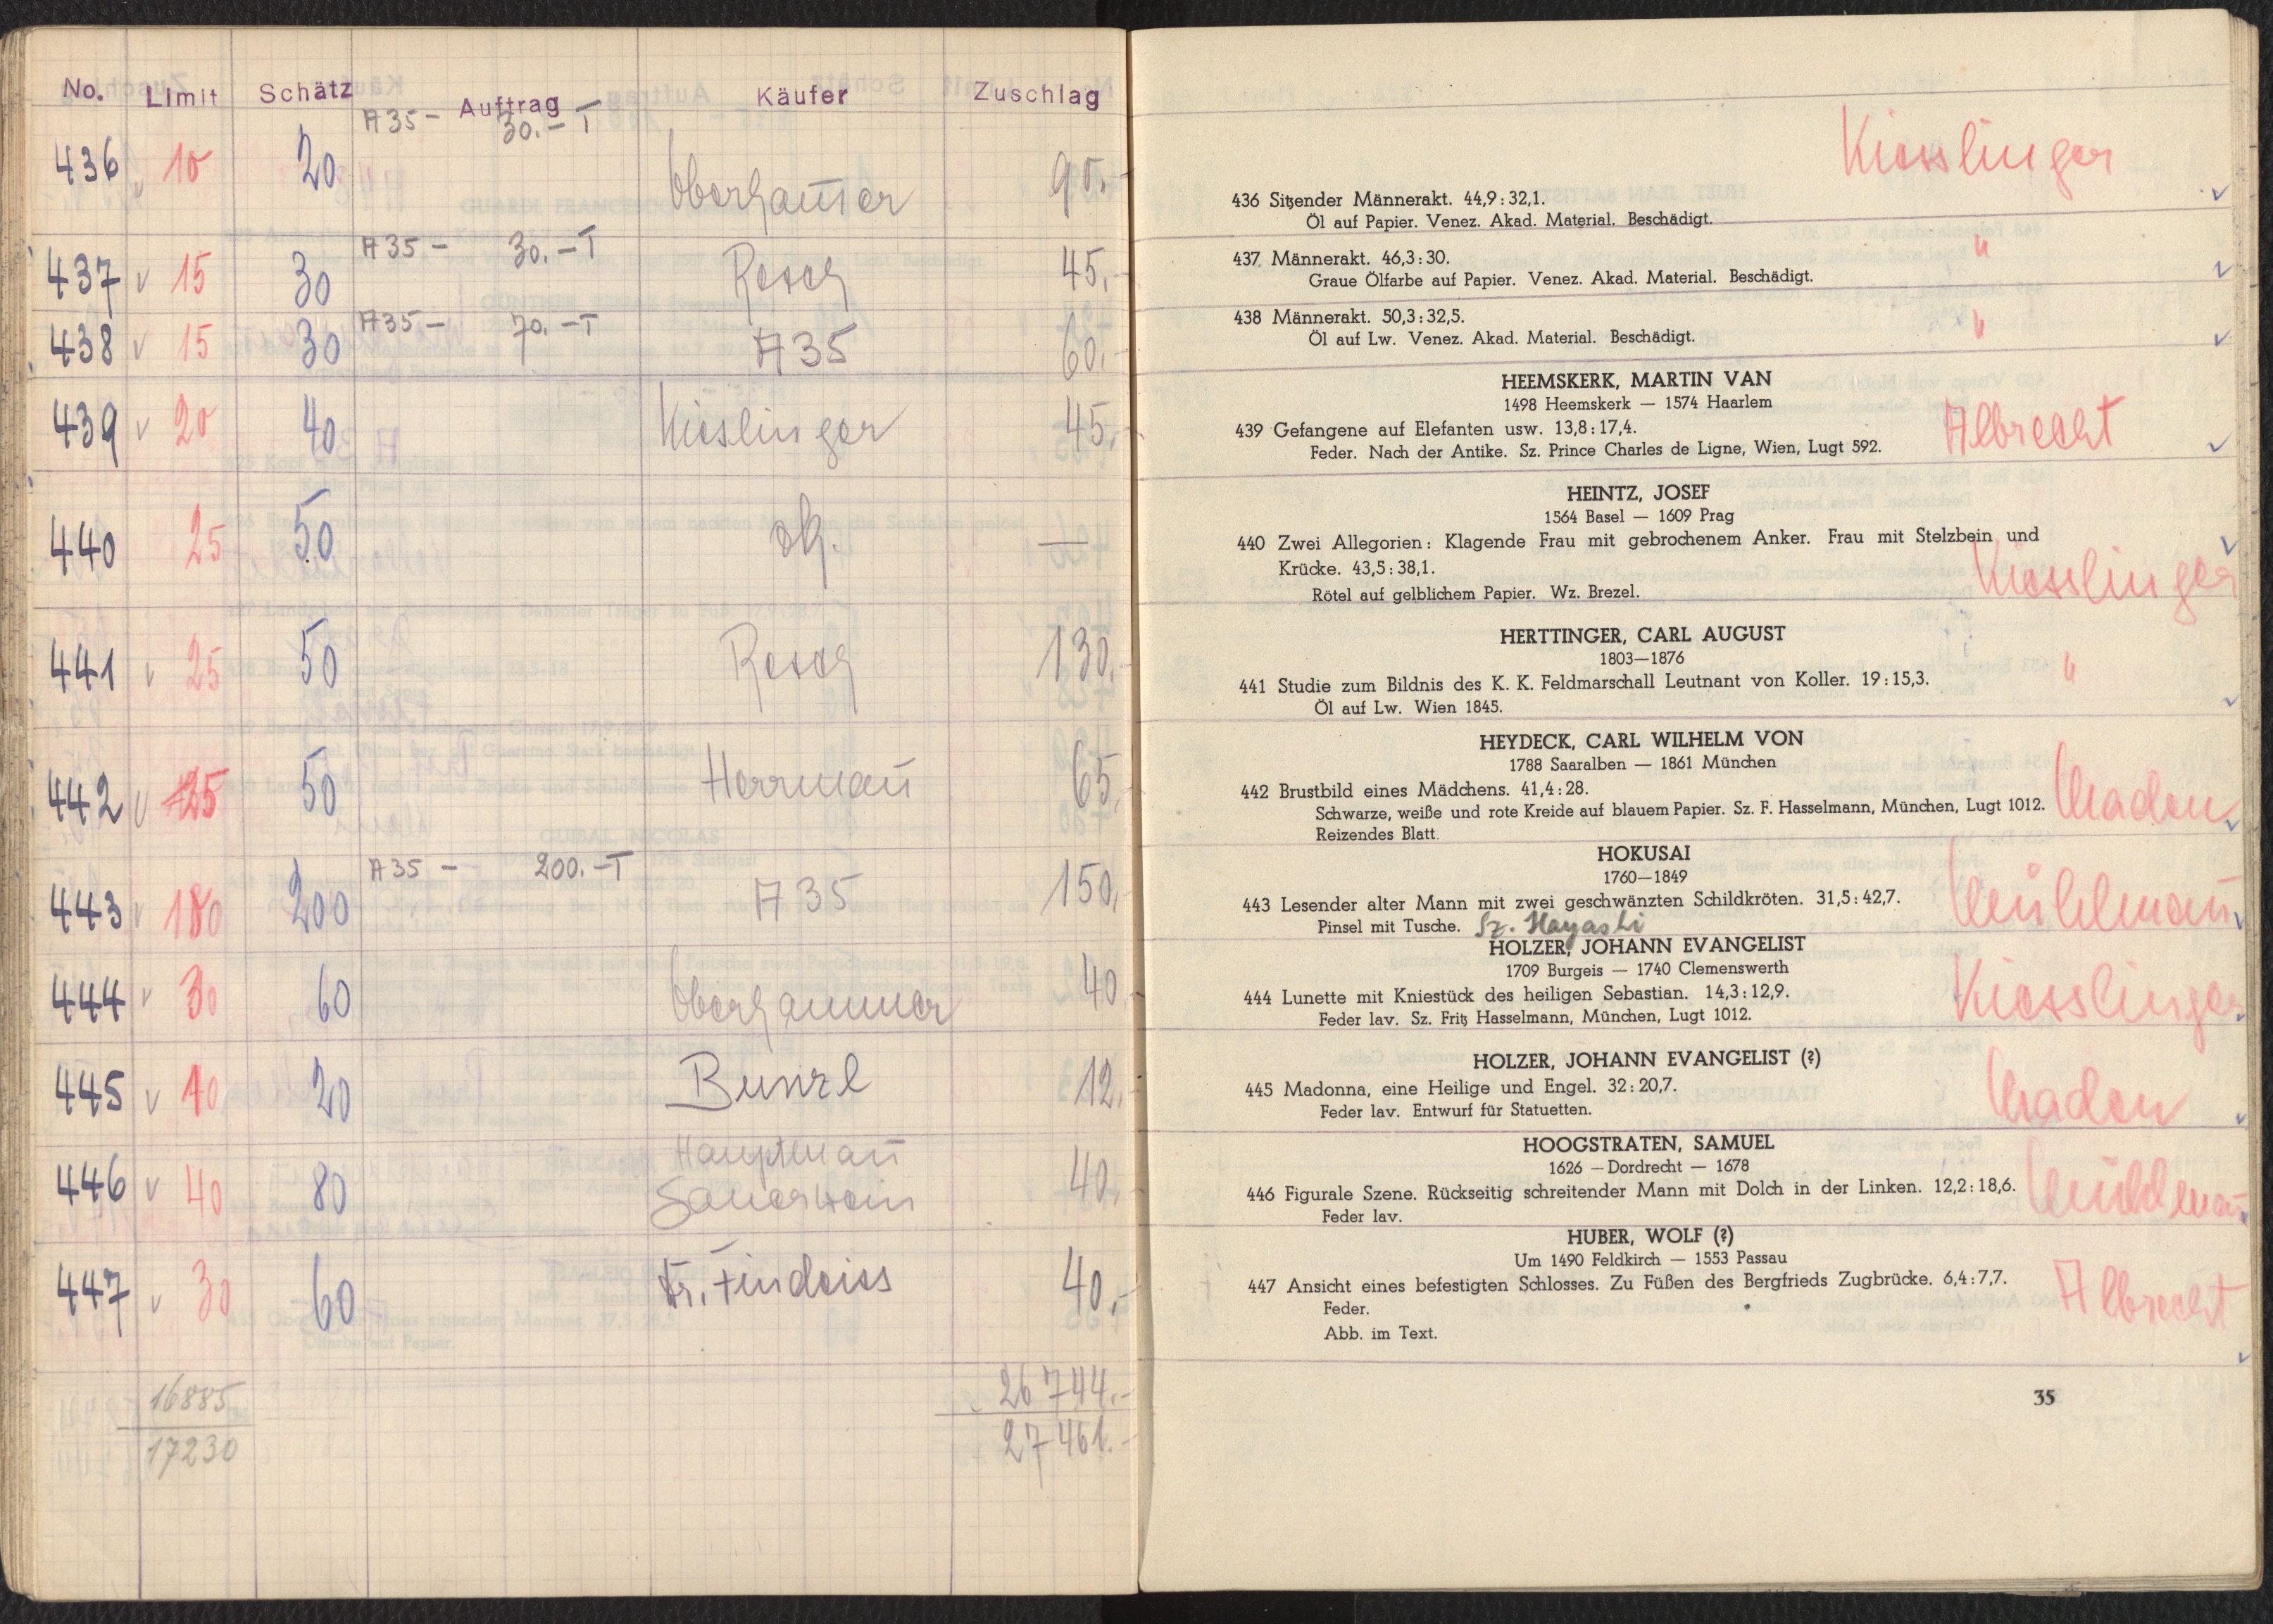 No. Limit Schätz Auftrag Käufer Zuschlag
A35 - 30.-T
436 v 10 20 90.-
A35 - 30.-T
437 v 15 30 Resch 45.-
A35 - 70.-T
438 v 15 30 A35 60.-
439 v 20 40 Kieslinger 45.-
440 25 50 —
441 v 25 50 Resch 130.-
442 v 25 50 Herrmañ 65.-
A35 - 200.-T
443 v 180 200 A35 150.-
444 v 30 60 Oberhammer 40.-
445 v 10 20 12.-
Hauptmañ
446 v 40 80 Sauerwein 40.-
447 v 30 60 Fr. Findeiss 40.-
16885 26744.-
17230 27461.-
Kiesslinger
436 Sitzender Männerakt. 44,9:32,1.
Öl auf Papier. Venez. Akad. Material. Beschädigt.
437 Männerakt. 46,3:30. "
Graue Ölfarbe auf Papier. Venez. Akad. Material. Beschädigt.
438 Männerakt. 50,3:32,5. "
Öl auf Lw. Venez. Akad. Material. Beschädigt.
HEEMSKERK, MARTIN VAN
1498 Heemskerk — 1574 Haarlem
439 Gefangene auf Elefanten usw. 13,8:17,4. Albrecht
Feder. Nach der Antike. Sz. Prince Charles de Ligne, Wien, Lugt 592.
HEINTZ, JOSEF
1564 Basel — 1609 Prag
440 Zwei Allegorien: Klagende Frau mit gebrochenem Anker. Frau mit Stelzbein und
Krücke. 43,5:38,1. Kiesslinger
Rötel auf gelblichem Papier. Wz. Brezel.
HERTTINGER, CARL AUGUST
1803—1876
441 Studie zum Bildnis des K. K. Feldmarschall Leutnant von Koller. 19:15,3. "
Öl auf Lw. Wien 1845.
HEYDECK, CARL WILHELM VON
1788 Saaralben — 1861 München
442 Brustbild eines Mädchens. 41,4:28.
Schwarze, weiße und rote Kreide auf blauem Papier. Sz. F. Hasselmann, München, Lugt 1012.
Reizendes Blatt.
HOKUSAI
1760—1849
443 Lesender alter Mann mit zwei geschwänzten Schildkröten. 31,5:42,7.
Pinsel mit Tusche. Sz. Hayashi
HOLZER, JOHANN EVANGELIST
1709 Burgeis — 1740 Clemenswerth
444 Lunette mit Kniestück des heiligen Sebastian. 14,3:12,9. Kiesslinger
Feder lav. Sz. Fritz Hasselmann, München, Lugt 1012.
HOLZER, JOHANN EVANGELIST (?)
445 Madonna, eine Heilige und Engel. 32:20,7.
Feder lav. Entwurf für Statuetten.
HOOGSTRATEN, SAMUEL
1626 — Dordrecht — 1678
446 Figurale Szene. Rückseitig schreitender Mann mit Dolch in der Linken. 12,2:18,6.
Feder lav.
HUBER, WOLF (?)
Um 1490 Feldkirch — 1553 Passau
447 Ansicht eines befestigten Schlosses. Zu Füßen des Bergfrieds Zugbrücke. 6,4:7,7. Albrecht
Feder.
Abb. im Text.
35